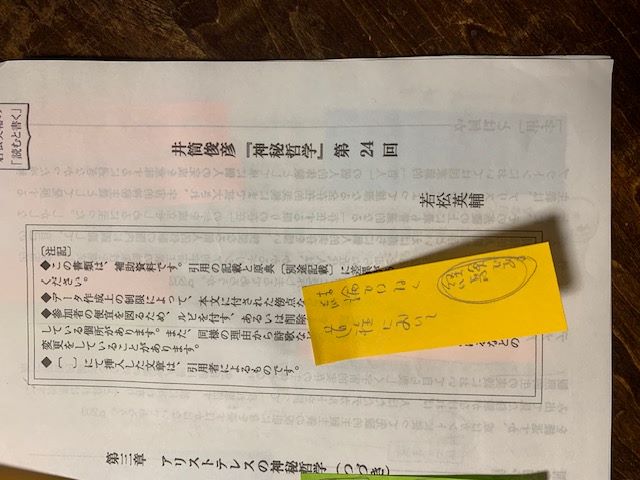 「読むと書く」
井筒俊彦『神秘哲学』第 24 回
若松英輔
〔注記〕
◆この書類は、補助資料です。引用の記載と原典(別途記載)に
ください。
◆データ作成上の制限によって、本文に付された傍点
◆参加者の便宜を図るため、ルビを付す、あるいは削除
している個所があります。また、同様の理由から詩歌など などの
変更をしていることがあります。
◆〔 〕にて挿入した文章は、引用者によるものです。
第三章 アリストテレスの神秘哲学(つづき)
結論ではなく
過程において
経験
する。